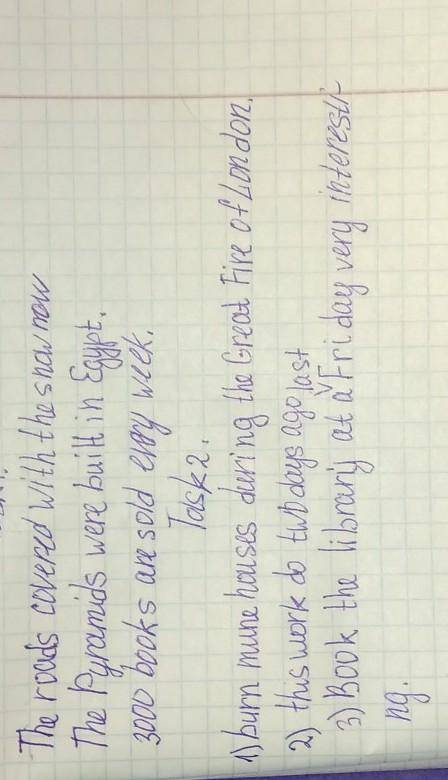 The roads covered with the snow now
The Pyramids were built in Egypt.
3000 books are sold every week.
Task 2.
1) burn mune houses during the Great Fire of London.
2) this work do two days ago last
3) Book the library at a Friday very interesti-
ng.